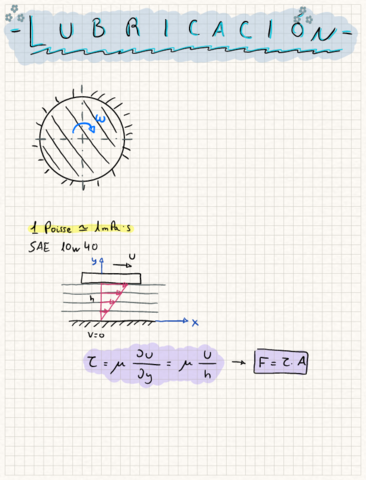 - LUBRICACIÓN -
ω
1 Poisse ≃ 1mPa·s
SAE 10w40
y U
h
x
V=0
τ = μ ∂u/∂y = μ U/h → F = τ·A